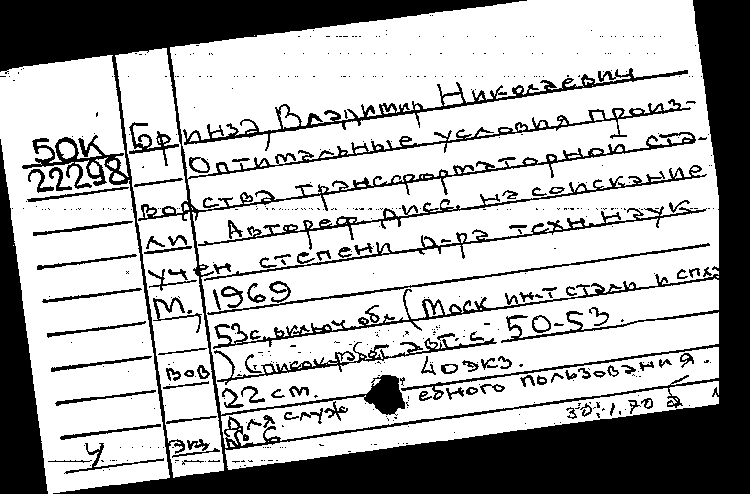 50К
22298
Бринза, Владимир Николаевич
Оптимальные условия произ-
водства трансформаторной ста-
ли. Автореф. дисс. на соискание
учен. степени д-ра техн. наук.
М., 1969
53 с., включ. обл. (Моск ин-т стали и спла
вов). Список работ авт.: с. 50-53.
22 cm. 40 экз.
Для служебного пользования.
Экз. № 6
У